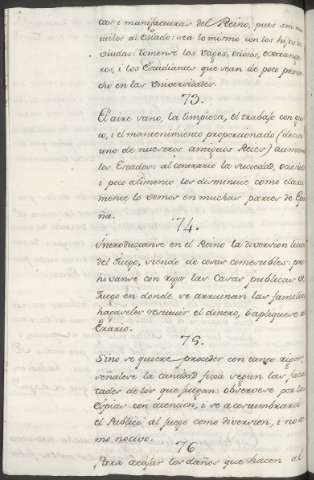 cas i manufacturas del Reino, pues son mui
utiles al estado: sea lo mismo con los hijos de
viudas: tomense los vagos, ociosos, extrange
ros, i los Estudiantes que sean de poco prove
cho en las Universidades.
73.
El aire sano, la limpiesa, el trabajo con gus
to, i el mantenimiento proporcionado (decia
uno de nuestros antiguos Reies) aumentan
los Estados: al contrario la suciedad, ociosidad
i poco alimento los disminue como clara
mente lo vemos en muchas partes de Espa
ña.
74.
Introduscanse en el Reino la diversion
del Juego, siendo de cosas comestibles: pro
hivanse con rigor las Casas publicas de
Juego en donde se arruinan las familias
hagaseles restituir el dinero, i apliquese al
Erario.
75.
Sino se quiere proceder con tanto rigor,
señalese la cantidad fixa segun las facul
tades de los que juegan: observese por las
Espias con atencion, i se acostumbrará
el Publico al juego como diversion, i no co
mo nocivo.
76
Para atajar los daños que hacen al